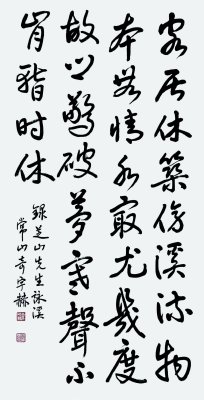 客居休築傍溪流物
本無情水最尤幾度
故山驚破夢寒聲不
肯暫時休
錄芝山先生詠溪
常山奇宇赫